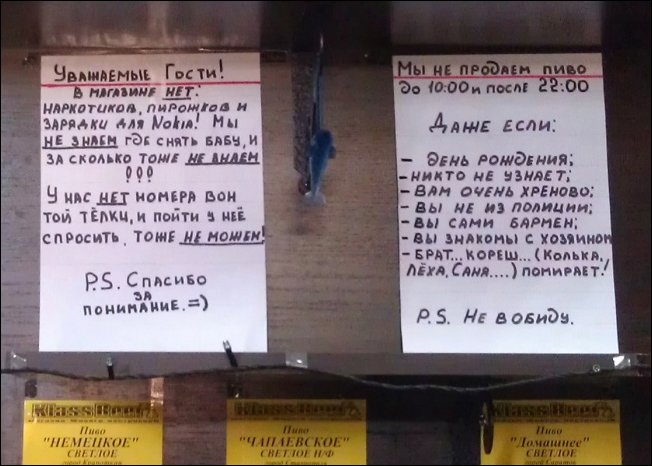 Уважаемые Гости!
В магазине нет:
наркотиков, пирожков и
зарядки для Nokia! Мы
не знаем где снять бабу, и
за сколько тоже не знаем
!!!
У нас нет номера вон
той тёлки, и пойти у неё
спросить, тоже не можем!
P.S. Спасибо
за
понимание. =)
Мы не продаем пиво
до 10:00 и после 22:00
Даже если:
- День рождения;
- никто не узнает;
- вам очень хреново;
- вы не из полиции;
- вы сами бармен;
- вы знакомы с хозяином
- брат... кореш... (Колька,
Лёха, Саня....) помирает!
P.S. Не в обиду.
Klass Beer
Пиво
"НЕМЕЦКОЕ"
СВЕТЛОЕ
Klass Beer
Пиво
"ЧАПАЕВСКОЕ"
СВЕТЛОЕ Н/Ф
Klass Beer
Пиво
"Домашнее"
СВЕТЛОЕ
город Саратов